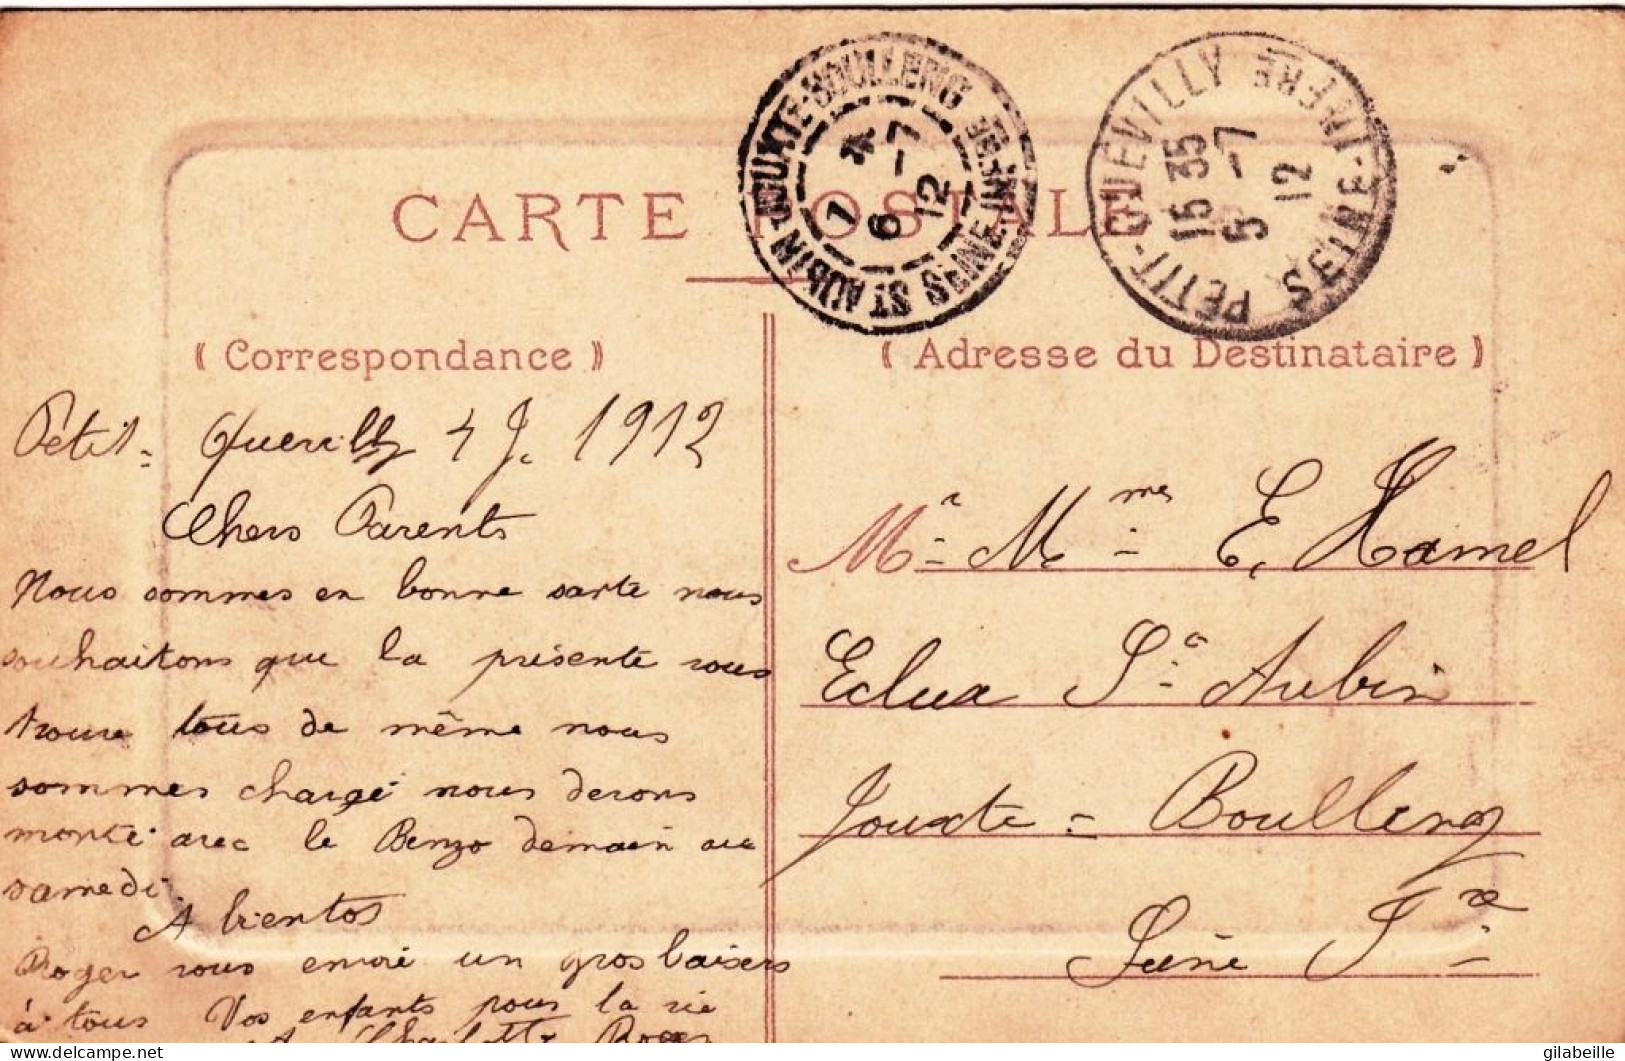 CARTE POSTALE
JOUXTE-BOULLENG SEINE-INFRE ST AUBIN
1 *
6 -7
12
PETIT-QUEVILLY SEINE-INFERRE
15 35
5 -7
12
( Correspondance )
( Adresse du Destinataire )
Pétit-Quevilly 4 J. 1912
Chers Parents
Nous sommes en bonne sante nous
souhaitons que la présente vous
trouve tous de même nous
sommes chargé nous devons
monté avec le Benzo demain ou
samedi.
A bientos
Roger vous envoi un gros baisers
à tous Vos enfants pour la vie
Charlotte Roger
Mr Mme E, Hamel
Eclux St Aubin
Jouxte = Boulleng
Seine Ire
gilabeille